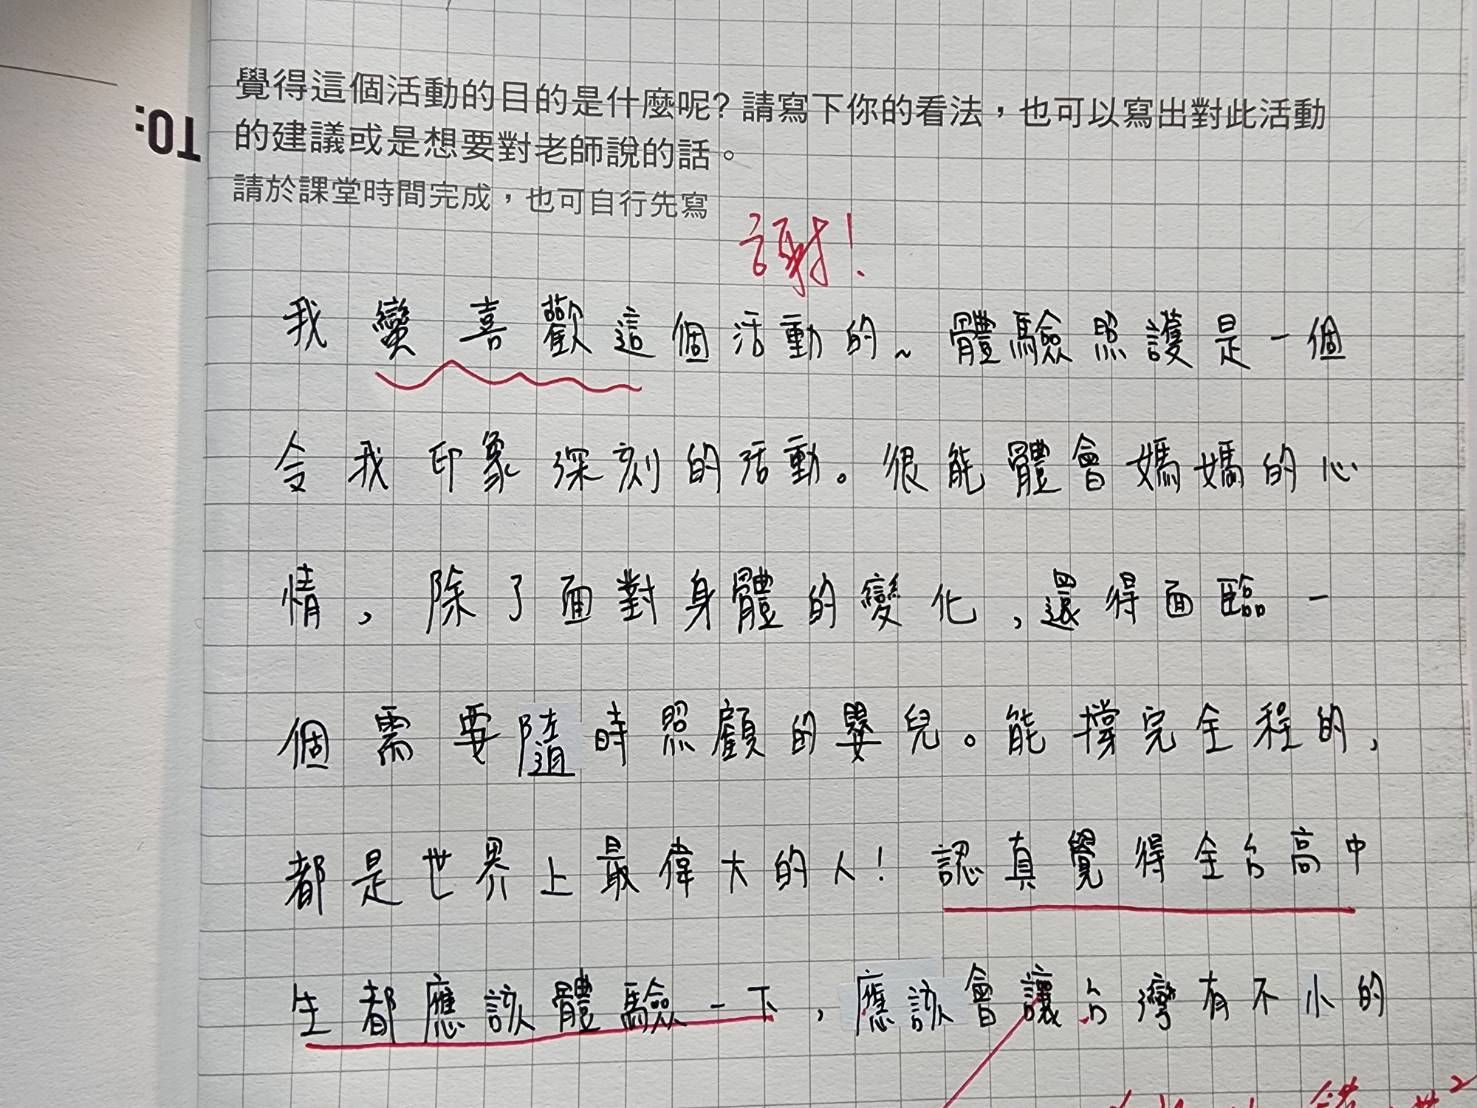 TO:
覺得這個活動的目的是什麼呢？請寫下你的看法，也可以寫出對此活動
的建議或是想要對老師說的話。
請於課堂時間完成，也可自行先寫
謝！
我蠻喜歡這個活動的～體驗照護是一個
令我印象深刻的活動。很能體會媽媽的心
情，除了面對身體的變化，還得面臨一
個需要隨時照顧的嬰兒。能撐完全程的，
都是世界上最偉大的人！認真覺得全台高中
生都應該體驗一下，應該會讓台灣有不小的